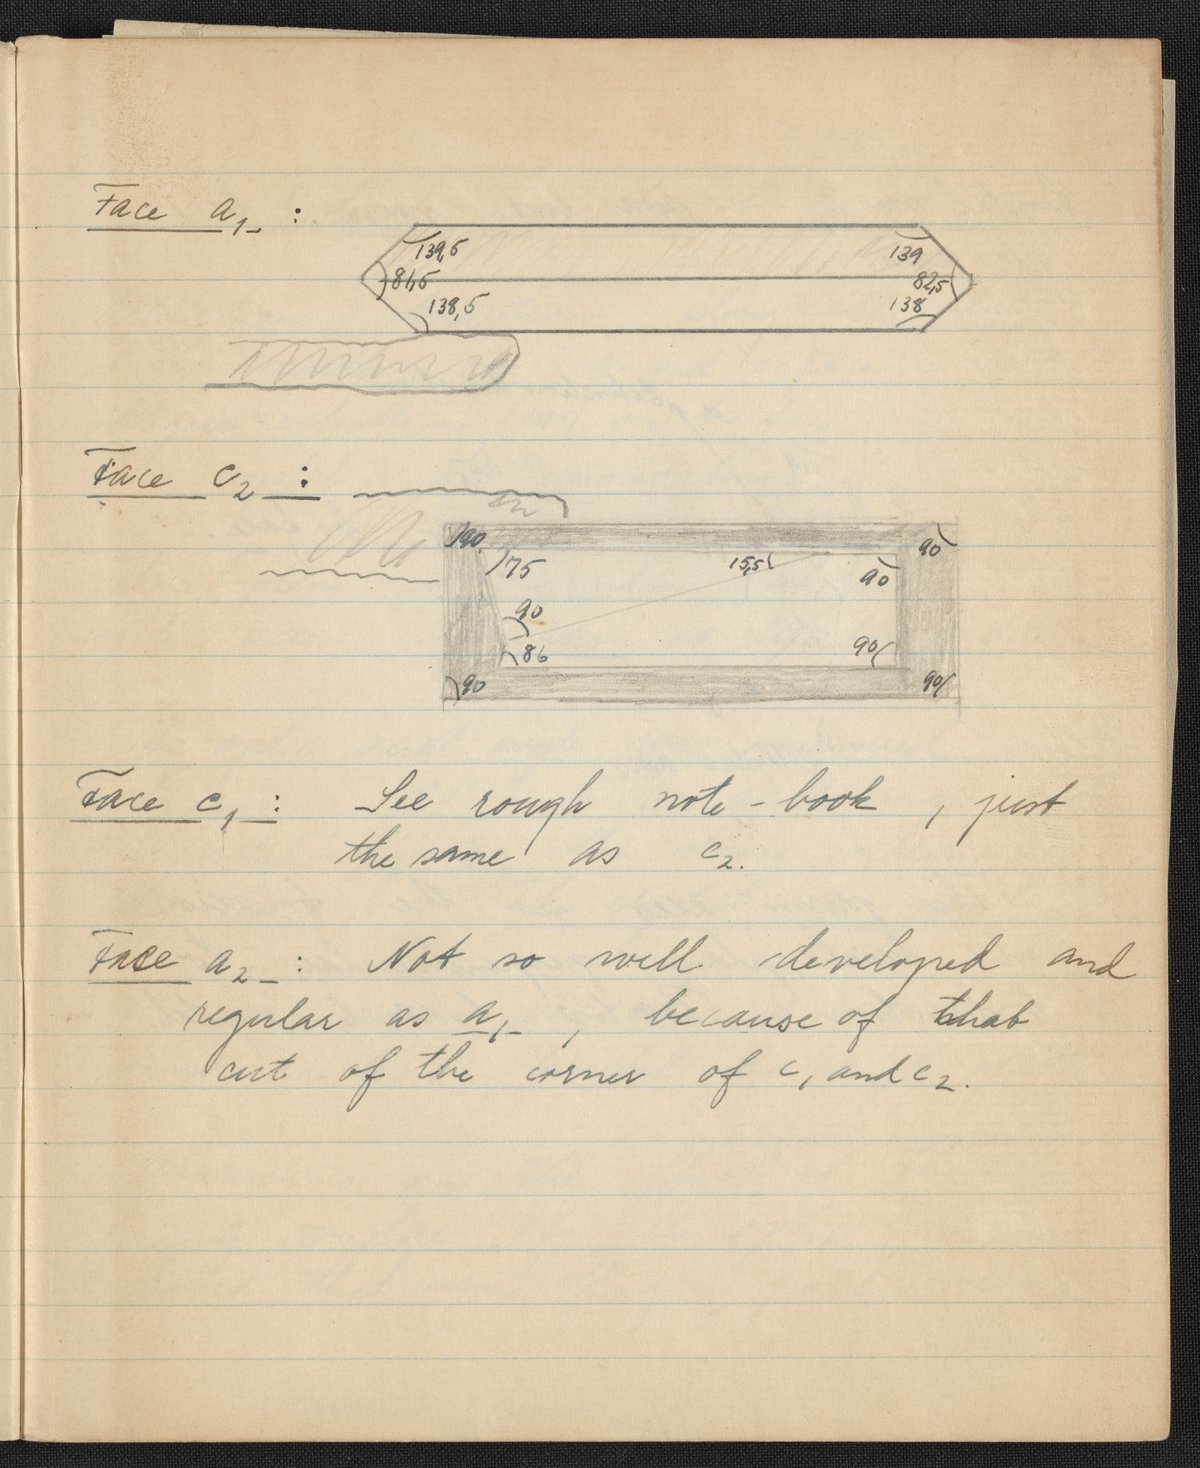 Face a1 :
139,5 139
81,5 82,5
138,5 138
Face c2 :
90 90
75 15,5 90
90
86 90
90 90
Face c1 : See rough note-book, just
the same as c2.
Face a2 : Not so well developed and
regular as a1, because of that
cut of the corner of c1 and c2.